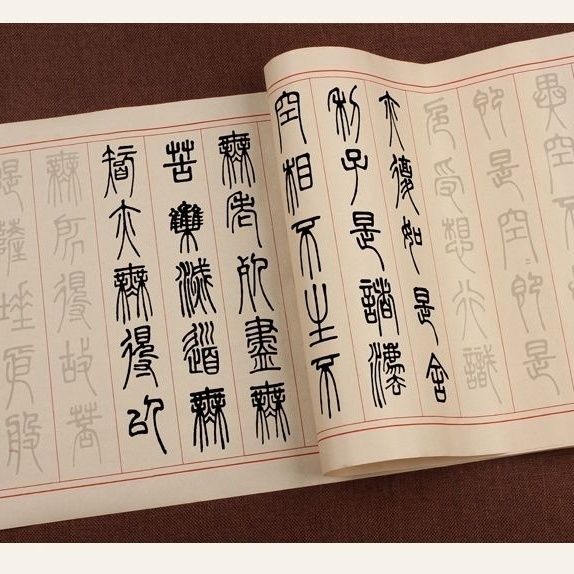 異
即是空即是
色受想行識
亦復如是舍
利子是諸法
空相不生不
無老死盡無
苦集滅道無
智亦無得以
無所得故菩
提薩埵依般